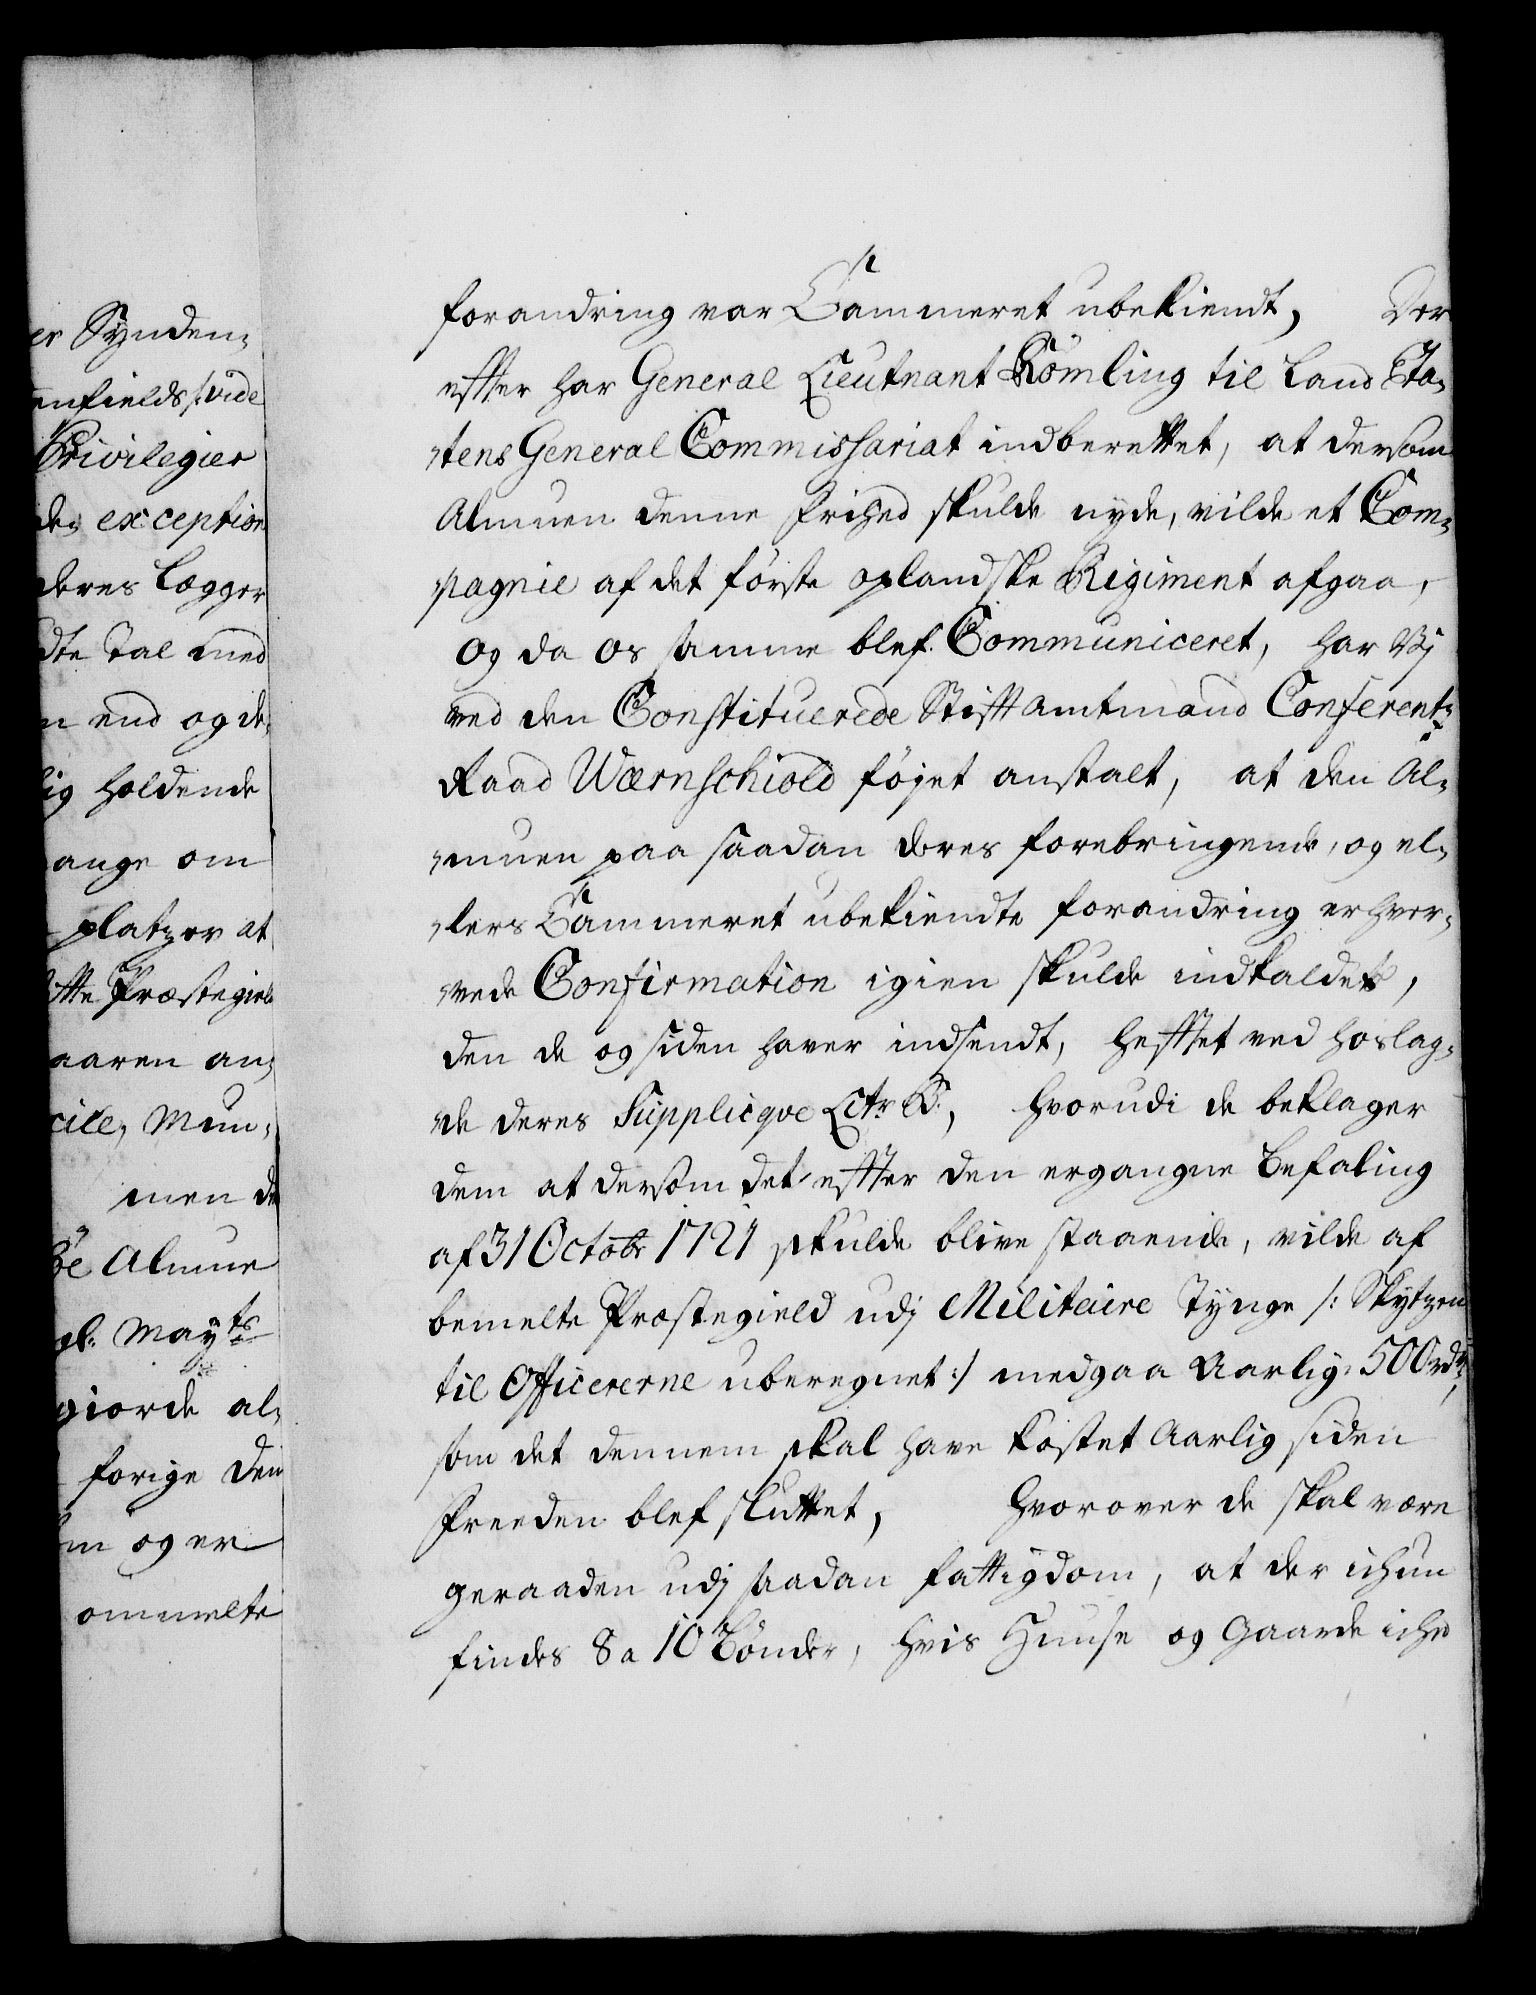 er Synden,
enfields /: vide
Privilegier
de, exception
deres Lægger
dte Tal med
n end og de,
lig holdende
ange om
platzer at
tte Præstegield
aaren an,
cile, Mun,
men de
öe Almue
gl: Mayts
giorde al,
forige den
m og er
ommelte
forandring var Cammeret ubekiendt, Der
effter har General Lieutnant Römling til Land Eta,
,tens General Commissariat indberettet, at dersom
Almuen denne frihed skulde nyde, vilde et Com,
,pagnie af det förste oplandske Regiment afgaa,
og da os samme blef Communiceret, har Vi
ved den Constituerede Stifftamtmand Conferentz
Raad Wærnschiold föjet anstalt, at den Al,
,muen paa saadan deres forebringende, og el,
,lers Cammeret ubekiendte forandring erhver,
,vede Confirmation igien skulde indkaldes,
den de og siden haver indsendt, hefftet ved hoslag,
,de deres Supplicqve Litr: B:, hvorudi de beklager
dem at dersom det effter den ergangne Befaling
af 31 Octobr 1721 skulde blive staaende, vilde af
bemelte Præstegield udj Militaire Tynge /: Skytzen
til Officererne uberegnet :/ medgaa Aarlig 500 rdr,
som det dennem skal have kostet Aarlig siden
Freeden blef sluttet, hvorover de skal være
geraaden udj saadan fattigdom, at der ichun
findes 8 a 10 Bönder, hvis Huuse og Gaarde iche